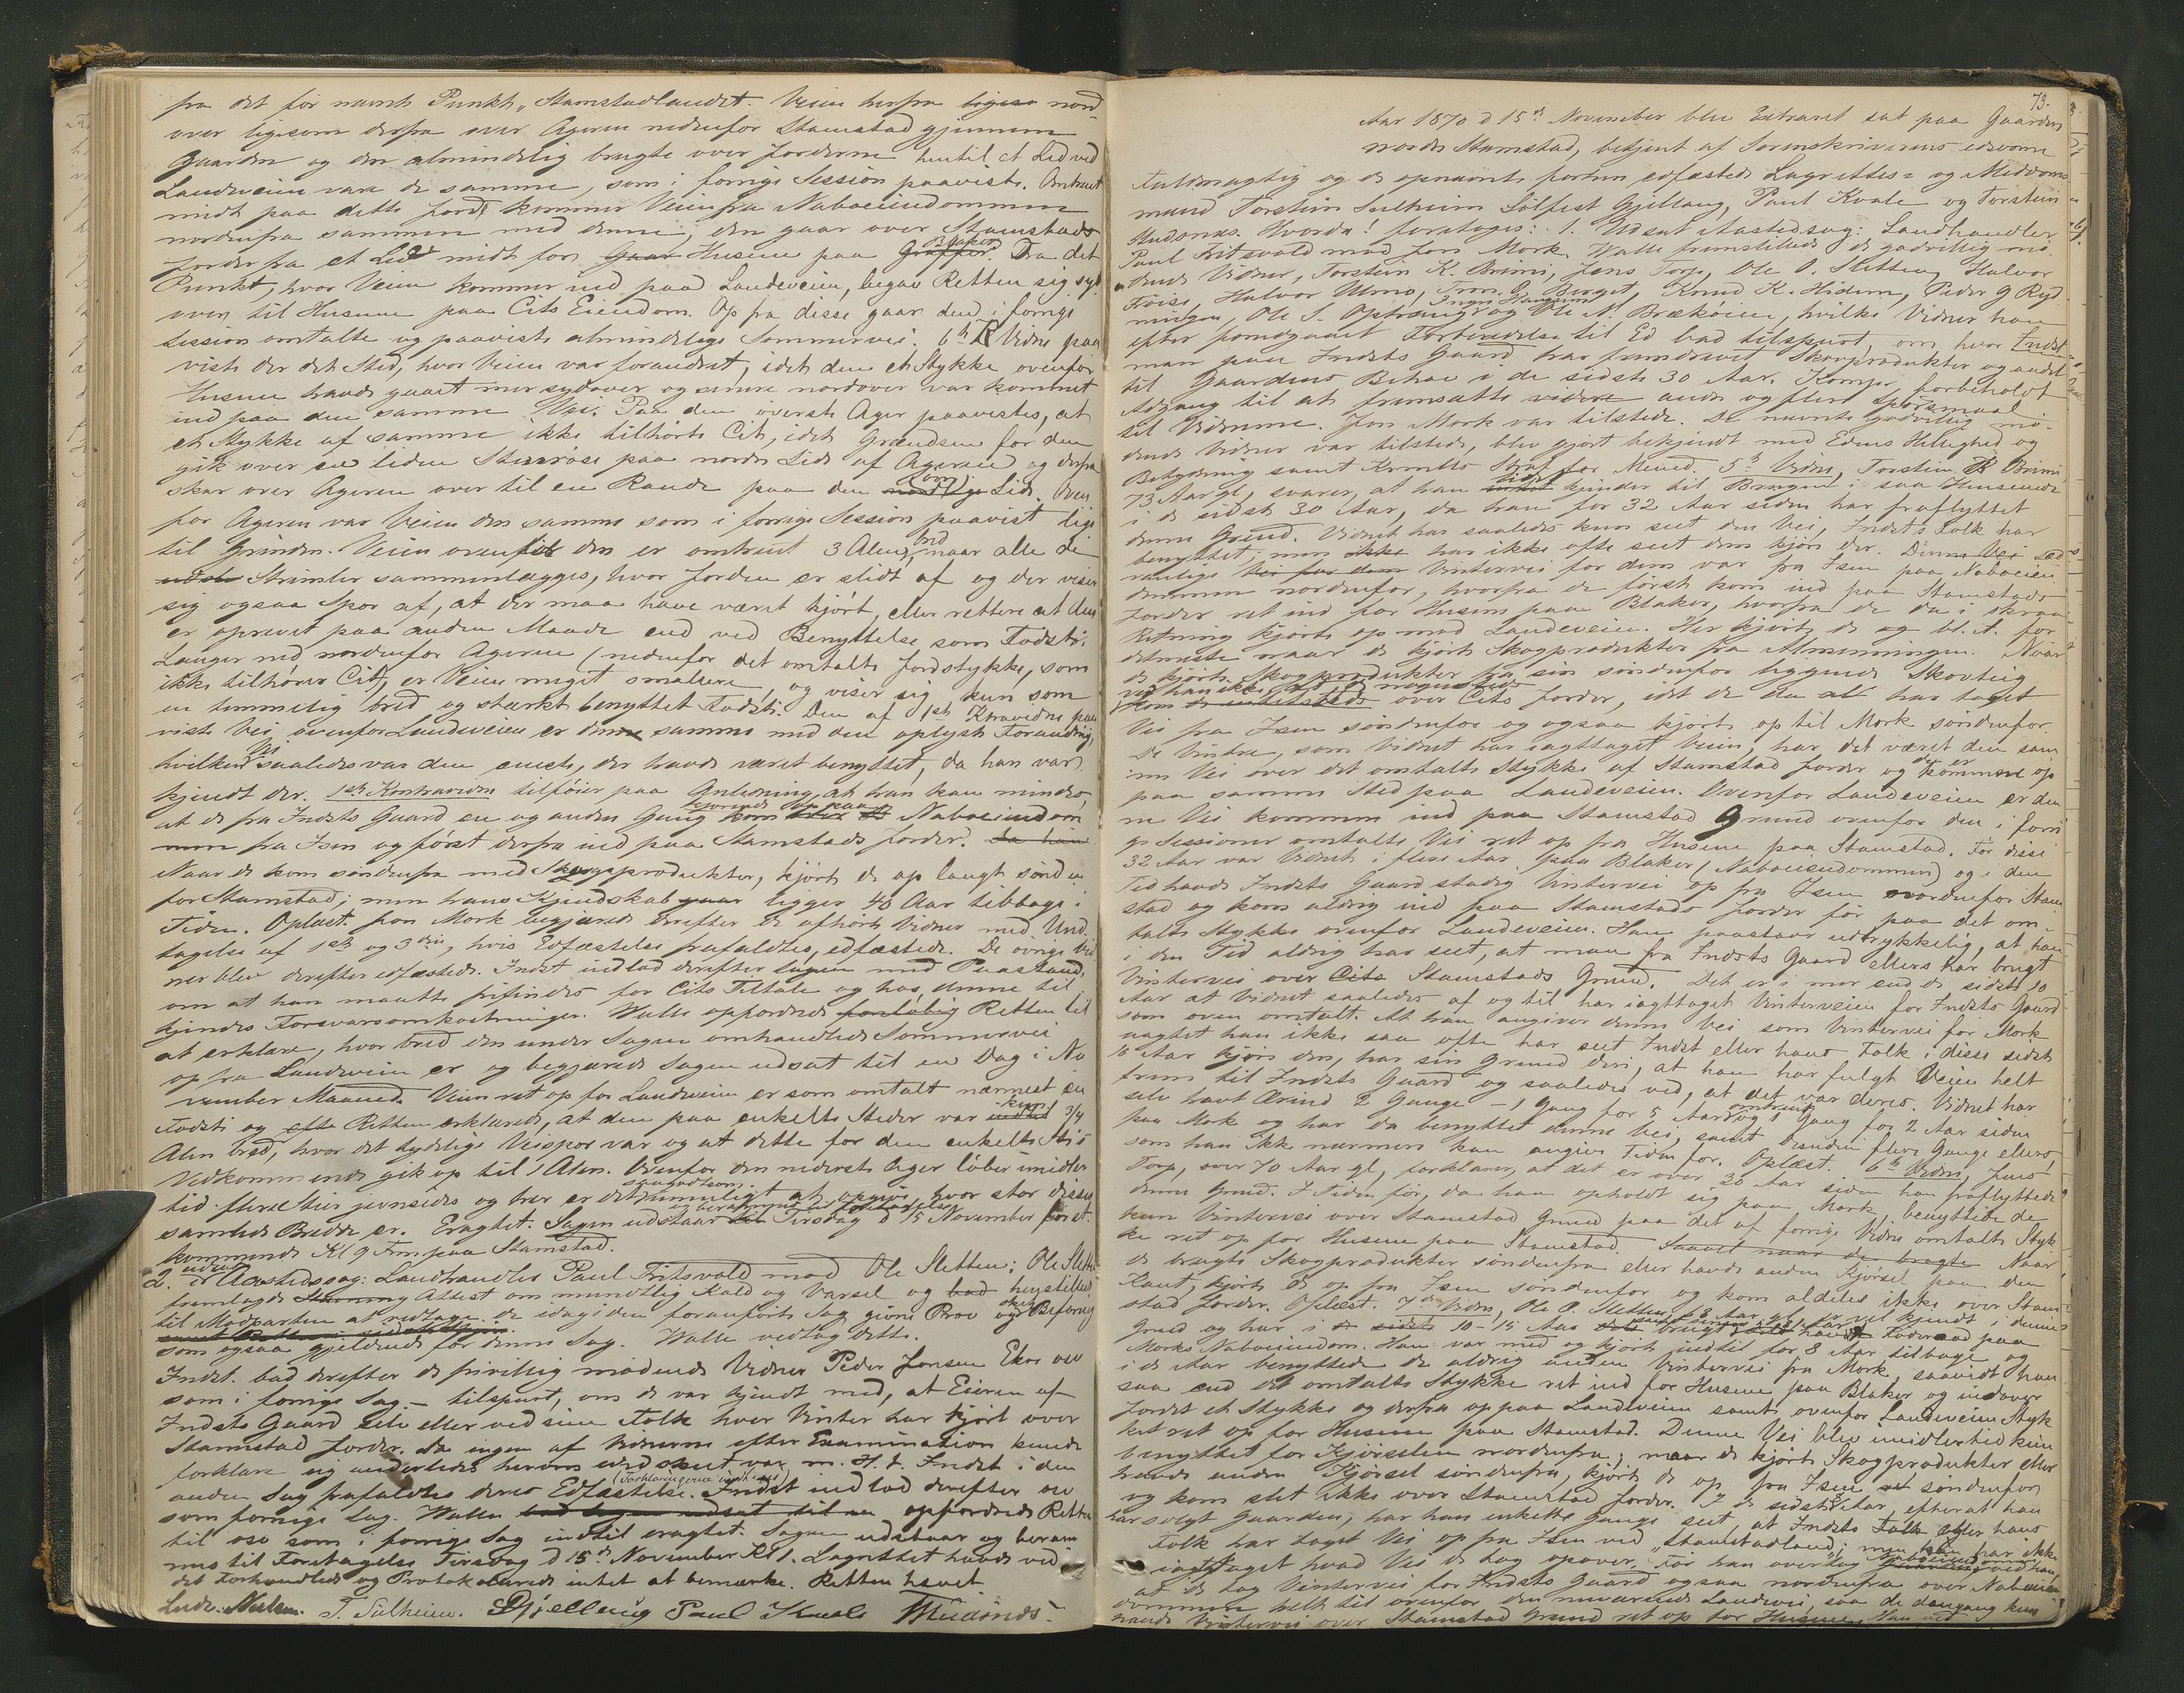 fra det før nævnte Punkt „Stamstadlandet. Veien herfra ligesaa nord-
over ligesom derfra over Ageren nedenfor Stamstad gjennem
Gaarden og den almindelig brugte over Jorderne hentil et Led ved
Landeveien vare de samme, som i forrige Session paaviste. Omtrent
midt paa dette Jorde kommer Veien fra Naboeiendommen
nordenfra sammen med denne; den gaar over Stamstads
Jorder fra et Led midt for Gaar Husene paa Blaker. Fra det
Punkt, hvor Veien kommer ind paa Landeveien, begav Retten sig syd-
over til Husene paa Cits Eiendom. Op fra disse gaar den i forrige
Session omtalte og paaviste almindelige Sommervei. 6te Vidne paa-
viste der det Sted, hvor Veien var forandret, idet den et Stykke ovenfor
Husene havde gaaet mer sydover og senere nordover var kommet
ind paa den samme Vei. Paa den øverste Ager paavistes, at
et Stykke af samme ikke tilhørte Cit, idet Grændsen for den
gik over en liden Stenrøse paa nordre Side af Ageren og derfra
skar over Ageren over til en Rande paa den Side. Oven-
for Ageren var Veien den samme som i forrige Session paavist lige
til Grinden. Veien ovenfor den er omtrent 3 Alen bred, naar alle de
Strimler sammenlægges, hvor Jorden er slidt af og der viser
sig ogsaa Spor af, at der maa have været kjørt, eller rettere at den
er oprevet paa anden Maade end ved Benyttelse som Fodsti.
Længer ned nordenfor Ageren (nedenfor det omtalte Jordstykke, som
ikke tilhører Cit), er Veien meget smalere og viser sig kun som
en temmelig bred og stærkt benyttet Fodsti. Den af 1ste Ktravidne paa-
viste Vei ovenfor Landeveien er den samme med den oplyste Forandring,
hvilken Vei saaledes var den eneste, der havde været benyttet, da han var
kjendt der. 1ste Kontravidne tilføier paa Anledning, at han kan mindes,
at de fra Indsts Gaard en og anden Gang kjørende op paa Naboeiendom-
men fra Isen og først derfra ind paa Stamstads Jorder. da han
Naar de kom søndenfra med Skogsprodukter, kjørte de op langt sønden-
for Stamstad; men hans Kjendskab ligger 40 Aar tilbage i
Tiden. Oplæst. Jon Mork begjærede derefter de afhørte Vidner med Und-
tagelse af 1ste og 3die, hvis Edfæstelse frafaldtes, edfæstede. De øvrige Vid-
ner blev derefter edfæstede. Indst. indlod derefter Sagen med Paastand
om at han maatte frifindes for Cits Tiltale og hos denne til-
kjendes Forsvarsomkostninger. Walle opfordrede foreløbig Retten til
at erklære, hvor bred den under Sagen omhandlede Sommervei
op fra Landeveien er og begjærede Sagen udsat til en Dag i No-
vember Maaned. Veien ret op for Landeveien er som omtalt nærmest en
Fodsti og Retten erklærede, at den paa enkelte Steder var kun 3/4
Alen bred, hvor det tydelige Veispor var og at dette for den enkelte Stis
Vedkommende gik op til 1 Alen. Ovenfor den nederste Ager løber imidler-
tid flere Stier jevnsides og her er det umuligt at opgive, hvor stor disses
samlede Bredde er. Eragtet: Sagen udstaar til Tirsdag d 15 November først-
kommende Kl 9 Fm paa Stamstad.
2. Aastedssag: Landhandler Paul Fritsvold mod Ole Sletten; Ole Sletten
fremlagde Attest om mundtlig Kald og Varsel og henstillede
til Modparten at vedtage de idag i den foranførte Sag givne Prov og Befaring
som ogsaa gjeldende for denne Sag. Walle vedtog dette.
Indst. bad derefter de frivillig mødende Vidner Peder Jonsen Ekre osv
som i forrige Sag – tilspurt, om de var kjendt med, at Eieren af
Indsts Gaard selv eller ved sine Folk hver Vinter har kjørt over
Stamstad Jorder. Da ingen af Vidnerne efter Examination kunde
forklare sig anderledes herom end skeet var m. H. t. Indst i den
anden Sag frafaldtes deres Edfæstelse. (Forklaringerne oplæstes) Indst indlod derefter osv
som forrige Sag. Walle opfordrede Retten
til osv som i forrige Sag indtil eragtet: Sagen udstaar og beram-
mes til Foretagelse Tirsdag d 15de November Kl 1. Lagrettet havde ved
det Forhandlede og Protokollerede intet at bemærke. Retten hævet.
T. Sulheim. Gjelleug Paul Kvale
73.
Aar 1870 d 15de November blev Extraret sat paa Gaarden
nordre Stamstad, betjent af Sorenskriverens edsvorne
Fuldmægtig og de opnævnte forhen edfæstede Lagrettes- og Meddoms-
mænd Torstein Sulheim Sølfest Gjellaug, Paul Kvale og Torstein
Hvorda! foretoges: 1. Udsat Aastedssag: Landhandler
Paul Fritsvold mod Jon Mork. Walle fremstillede de godvillig mø-
dende Vidner, Torstein K. Brimi, Jens Torp, Ole O. Sletten, Halvor
Foise, Halvor Ulmo, Tron G. Berget, Knud K. Hidem, Peder G Ryd-
ningen, Ole I. Opstranger og Ole N. Brækøien, hvilke Vidner han
efter foregaaet Forberedelse til Ed bad tilspurt, om hvor Indst.
man paa Indsts Gaard har fremdrevet Skovprodukter og andet
til Gaardens Behov i de sidste 30 Aar. Komp. forbeholdt
Adgang til at fremsætte andre og flere Spørsmaal
til Vidnerne. Jon Mork var tilstede. De nævnte godvillig mø-
dende Vidner var tilstede, blev gjort bekjendt med Edens Hellighed og
Betydning samt Straf for Mened. 5te Vidne, Torstein K Brimi,
73 Aar gl, svarer, at han lidet kjender til Brugen i saa Henseende
i de sidste 30 Aar, da han for 32 Aar siden har fraflyttet
denne Grend. Vidnet har saaledes kun seet den Vei, Indsts Folk har
benyttet; men har ikke ofte seet dem kjøre der. Denne Vei Sæd-
vanlige Vintervei for dem var fra Isen paa Naboeien-
dommen nordenfor, hvorfra de først kom ind paa Stamstads
Jorder ret ind for Husene paa Blaker, hvorfra de da i skraa
Retning kjørte op mod Landeveien. Her kjørte de og bl. a. for
detmeste naar de kjørte Skogprodukter fra Almenningen. Naar
de kjørte Skogprodukter fra sin søndenfor liggende Skovteig
over Cits Jorder, idet de da har taget
Vei fra Isen søndenfor og ogsaa kjørt op til Mork søndenfor.
De Vintre, som Vidnet har iagttaget Veien, har det været den sam-
me Vei over det omtalte Stykke af Stamstad Jorder og de er kommen op
paa samme Sted paa Landeveien. Ovenfor Landeveien er den-
ne Vei kommen ind paa Stamstad Grund ovenfor den i forri-
ge Sessioner omtalte Vei ret op fra Husene paa Stamstad. For disse
32 Aar var Vidnet i flere Aar paa Blaker (Naboeiendommen) og i den
Tid havde Indsts Gaard stadig Vintervei op fra Isen nordenfor Stam-
stad og kom aldrig ind paa Stamstads Jorder før paa det om-
talte Stykke ovenfor Landeveien. Han paastaar udtrykkelig, at han
i den Tid aldrig har seet, at man fra Indsts Gaard ellers har brugt
Vintervei over Cits Stamstads Grund. Det er i mer end de sidste 10
Aar at Vidnet saaledes af og til har iagttaget Vinterveien for Indsts Gaard
som oven omtalt. At han angiver denne Vei som Vintervei for Mork
uagtet han ikke saa ofte har seet Indst eller hans Folk i disse sidste
10 Aar kjøre den, har sin Grund deri, at han har fulgt Veien helt
frem til Indsts Gaard og saaledes ved, at det var deres. Vidnet har
selv havt Ærind 2 Gange – 1 Gang for 5 Aar og 1 Gang for 2 Aar siden
paa Mork og har da benyttet denne Vei, samt desuden flere Gange ellers,
som han ikk nærmere kan angive Tiden for. Oplæst. 6te Vidne, Jens
Torp, over 70 Aar gl, forklarer, at det er over 30 Aar siden han fraflyttede
denne Grend. I Tiden før, da han opholdt sig paa Mork, benyttede de
kun Vintervei over Stamstad Grund paa det af forrige Vidne omtalte Styk-
ke ret op for Husene paa Stamstad. Saavel naar de bragte Naar
de bragte Skogprodukter søndenfra eller havde anden Kjørsel paa den
Kant, kjørte de op fra Isen søndenfor og kom aldeles ikke over Stam-
stad Jorder. Oplæst. 7de Vidne, Ole P. Sletten, 68 Aar gl, er vel kjendt i denne
Grend og har i 10–15 Aar brugt Føderaad paa
Morks Naboeiendom. Han var med og kjørte indtil for 8 Aar tilbage og
i de Aar benyttede de aldrig anden Vintervei fra Mork, saavidt han
saa end det omtalte Stykke ret ind for Husene paa Blaker og indover
Jordet et Stykke og derfra op paa Landeveien samt ovenfor Landeveien Styk-
ket ret op for Husene paa Stamstad. Denne Vei blev imidlertid kun
benyttet for Kjørselen nordenfra; naar de kjørte Skogprodukter eller
havde anden Kjørsel søndenfra, kjørte de op fra Isen søndenfor
og kom slet ikke over Stamstad Jorder. I de sidste 8 Aar, efterat han
har solgt Gaarden, har han enkelte Gange seet, at Indsts Folk eller hans
Folk har taget Vei op fra Isen ved „Stamstadland“; men han har ikke
iagttaget hvad Vei de tog opover. Før han overtog Naboeiendommen ved han,
at de tog Vintervei for Indsts Gaard ogsaa nordenfra over Naboeien-
dommen helt til ovenfor den nuværende Landevei, saa de dengang kun
havde Vintervei over Stamstad Grund ret op for Husene. Han ved